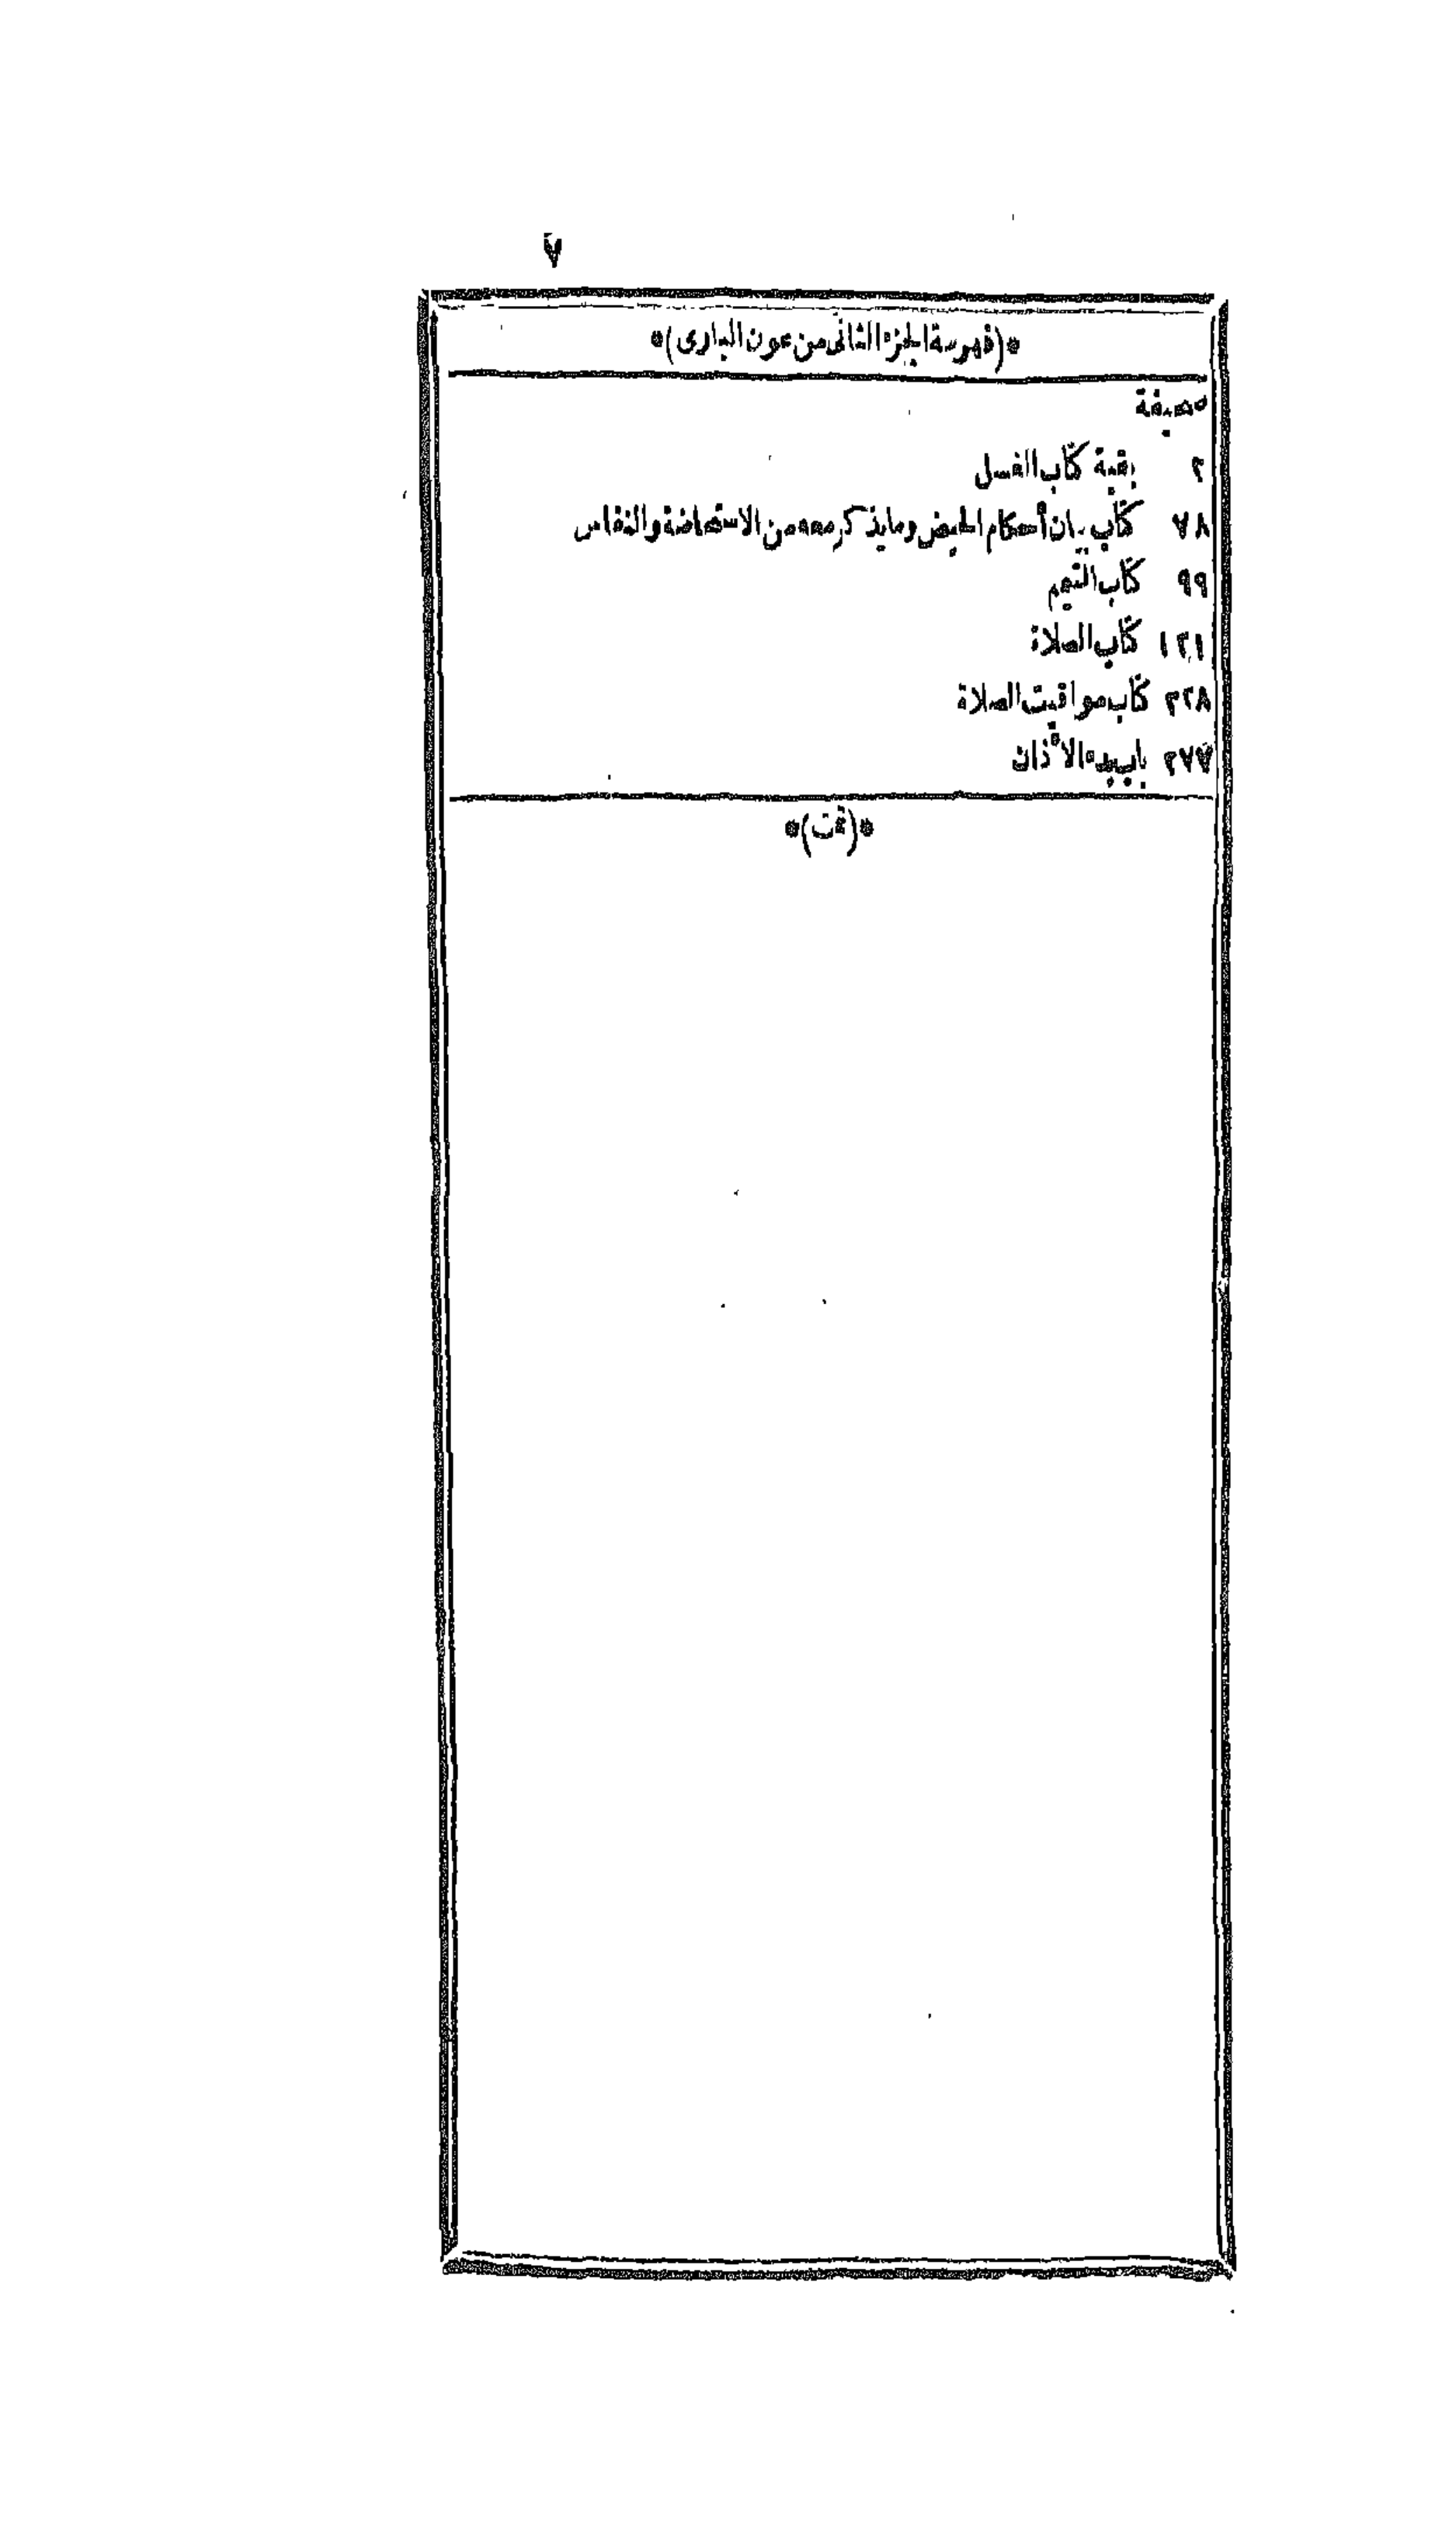 ٧
*(فهرسة الجزء الثانى من عون البارى)*
صحيفة
٢ بقية كتاب الغسل
٧٨ كتاب بيان أحكام الحيض وما يذكر معه من الاستحاضة والنفاس
٩٩ كتاب التيمم
١٢١ كتاب الصلاة
٢٢٨ كتاب مواقيت الصلاة
٢٧٧ باب بدء الاذان
*(تمت)*